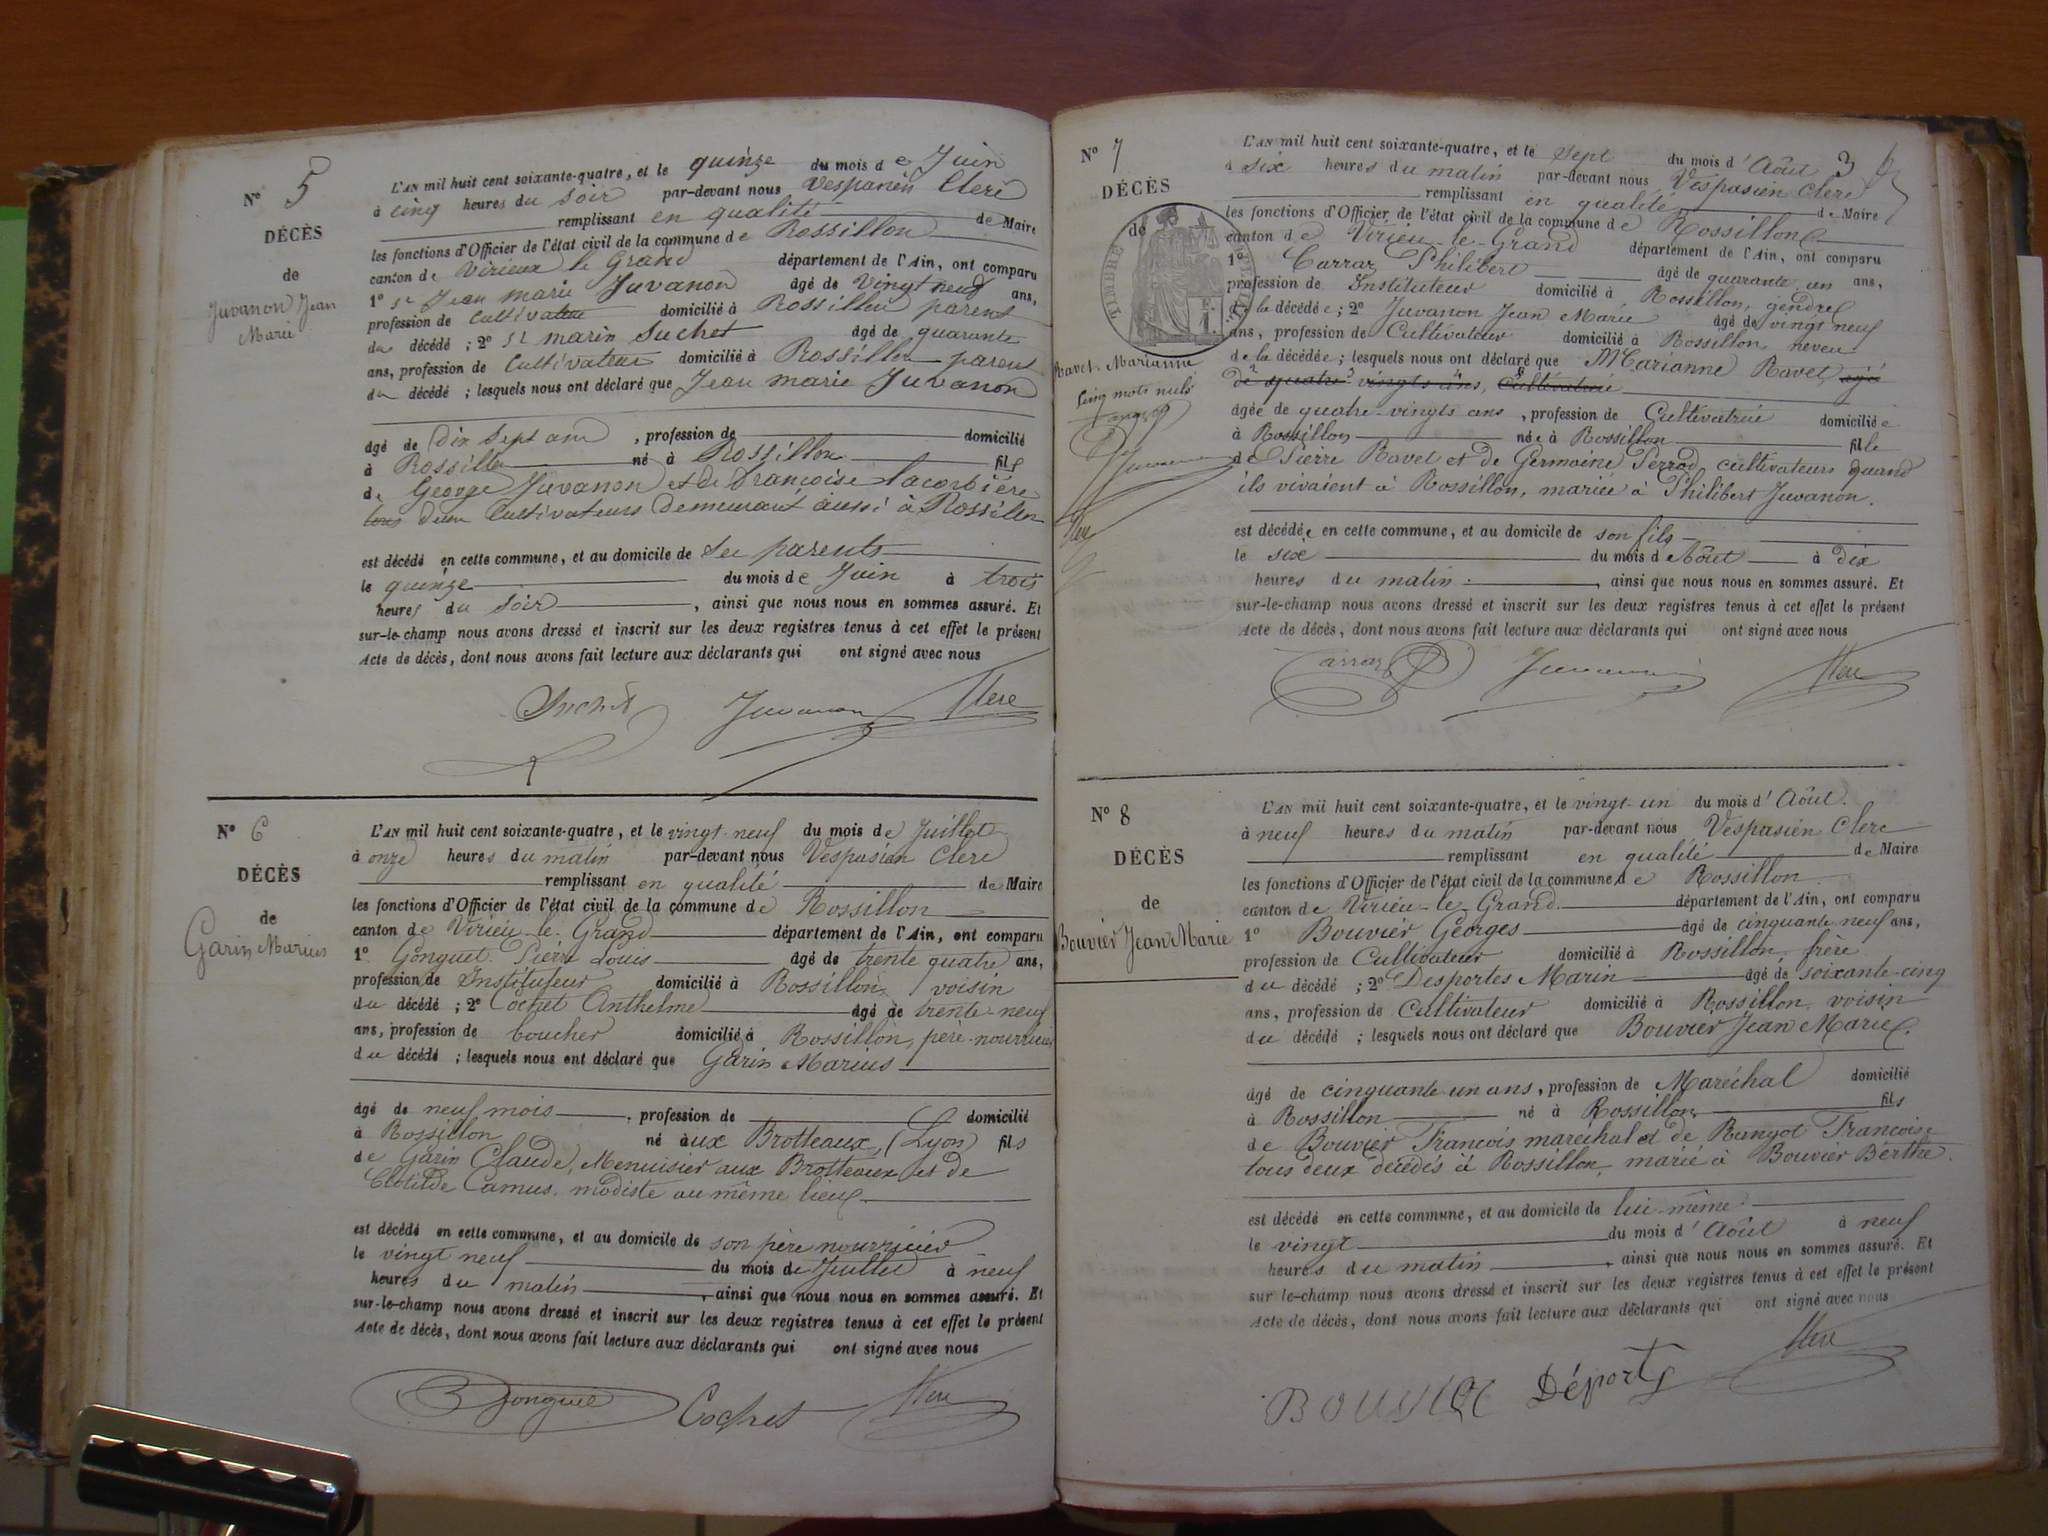 N° 5
DÉCÈS
de
Juvanon Jean
Marie
L'AN mil huit cent soixante-quatre, et le quinze du mois de Juin
à cinq heures du soir par-devant nous Vespasien Clerc
remplissant en qualité de Maire
les fonctions d'Officier de l'état civil de la commune de Rossillon
canton de Virieux le Grand département de l'Ain, ont comparu
1° sr Jean marie Juvanon âgé de Vingt neuf ans,
profession de Cultivateur domicilié à Rossillon parent
du décédé ; 2° sr marin Suchet âgé de quarante
ans, profession de Cultivateur domicilié à Rossillon parent
du décédé ; lesquels nous ont déclaré que Jean marie Juvanon
âgé de dix sept ans, profession de domicilié
à Rossillon né à Rossillon fils
de George Juvanon et de françoise Lacorbière
tous deux Cultivateurs demeurant aussi à Rossillon
est décédé en cette commune, et au domicile de Ses parents
le quinze du mois de Juin à trois
heures du Soir, ainsi que nous nous en sommes assuré. Et
sur-le-champ nous avons dressé et inscrit sur les deux registres tenus à cet effet le présent
Acte de décès, dont nous avons fait lecture aux déclarants qui ont signé avec nous
Suchet Juvanon Clerc
N° 6
DÉCÈS
de
Garin Marius
L'AN mil huit cent soixante-quatre, et le vingt-neuf du mois de Juillet
à onze heures du matin par-devant nous Vespasien Clerc
remplissant en qualité de Maire
les fonctions d'Officier de l'état civil de la commune de Rossillon
canton de Virieu-le-Grand département de l'Ain, ont comparu
1° Gonguet Pierre Louis âgé de trente quatre ans,
profession de Instituteur domicilié à Rossillon, voisin
du décédé ; 2° Cochet Anthelme âgé de trente-neuf
ans, profession de boucher domicilié à Rossillon, père-nourricier
du décédé ; lesquels nous ont déclaré que Garin Marius
âgé de neuf mois, profession de domicilié
à Rossillon né aux Brotteaux, (Lyon) fils
de Garin Claude, Menuisier aux Brotteaux et de
Clotilde Camus, modiste au même lieu
est décédé en cette commune, et au domicile de son père nourricier
le vingt neuf du mois de Juillet à neuf
heures du matin, ainsi que nous nous en sommes assuré. Et
sur-le-champ nous avons dressé et inscrit sur les deux registres tenus à cet effet le présent
Acte de décès, dont nous avons fait lecture aux déclarants qui ont signé avec nous
Gonguet Cochet Clerc
N° 7
DÉCÈS
de
TIMBRE
Ravet Marianne
Cinq mots nuls
L'AN mil huit cent soixante-quatre, et le sept du mois d'Août 3
à six heures du matin par-devant nous Vespasien Clerc
remplissant en qualité de Maire
les fonctions d'Officier de l'état civil de la commune de Rossillon
canton de Virieu-le-Grand département de l'Ain, ont comparu
1° Carraz Philibert âgé de quarante un ans,
profession de Instituteur domicilié à Rossillon, gendre
de la décédée ; 2° Juvanon Jean Marie âgé de vingt neuf
ans, profession de Cultivateur domicilié à Rossillon, neveu
de la décédée ; lesquels nous ont déclaré que Marianne Ravet, agée
de quatre vingts ans, Cultivatrice
âgée de quatre-vingts ans, profession de Cultivatrice domiciliée
à Rossillon née à Rossillon fille
de Pierre Ravet et de Germaine Perrod cultivateurs quand
ils vivaient à Rossillon, mariée à Philibert Juvanon.
est décédée en cette commune, et au domicile de son fils
le six du mois d'Août à dix
heures du matin, ainsi que nous nous en sommes assuré. Et
sur-le-champ nous avons dressé et inscrit sur les deux registres tenus à cet effet le présent
Acte de décès, dont nous avons fait lecture aux déclarants qui ont signé avec nous
Carraz Juvanon Clerc
N° 8
DÉCÈS
de
Bouvier Jean Marie
L'AN mil huit cent soixante-quatre, et le vingt-un du mois d'Août.
à neuf heures du matin par-devant nous Vespasien Clerc
remplissant en qualité de Maire
les fonctions d'Officier de l'état civil de la commune de Rossillon
canton de Virieu-le-Grand département de l'Ain, ont comparu
1° Bouvier Georges âgé de cinquante neuf ans,
profession de Cultivateur domicilié à Rossillon, frère
du décédé ; 2° Desportes Marin âgé de soixante-cinq
ans, profession de Cultivateur domicilié à Rossillon, voisin
du décédé ; lesquels nous ont déclaré que Bouvier Jean Marie.
âgé de cinquante-un ans, profession de Maréchal domicilié
à Rossillon né à Rossillon fils
de Bouvier François maréchal et de Rungot Françoise
tous deux décédés à Rossillon, marié à Bouvier Berthe.
est décédé en cette commune, et au domicile de lui-même
le vingt du mois d'Août à neuf
heures du matin, ainsi que nous nous en sommes assuré. Et
sur le-champ nous avons dressé et inscrit sur les deux registres tenus à cet effet le présent
Acte de décès, dont nous avons fait lecture aux déclarants qui ont signé avec nous
BOUVIER Déports Clerc